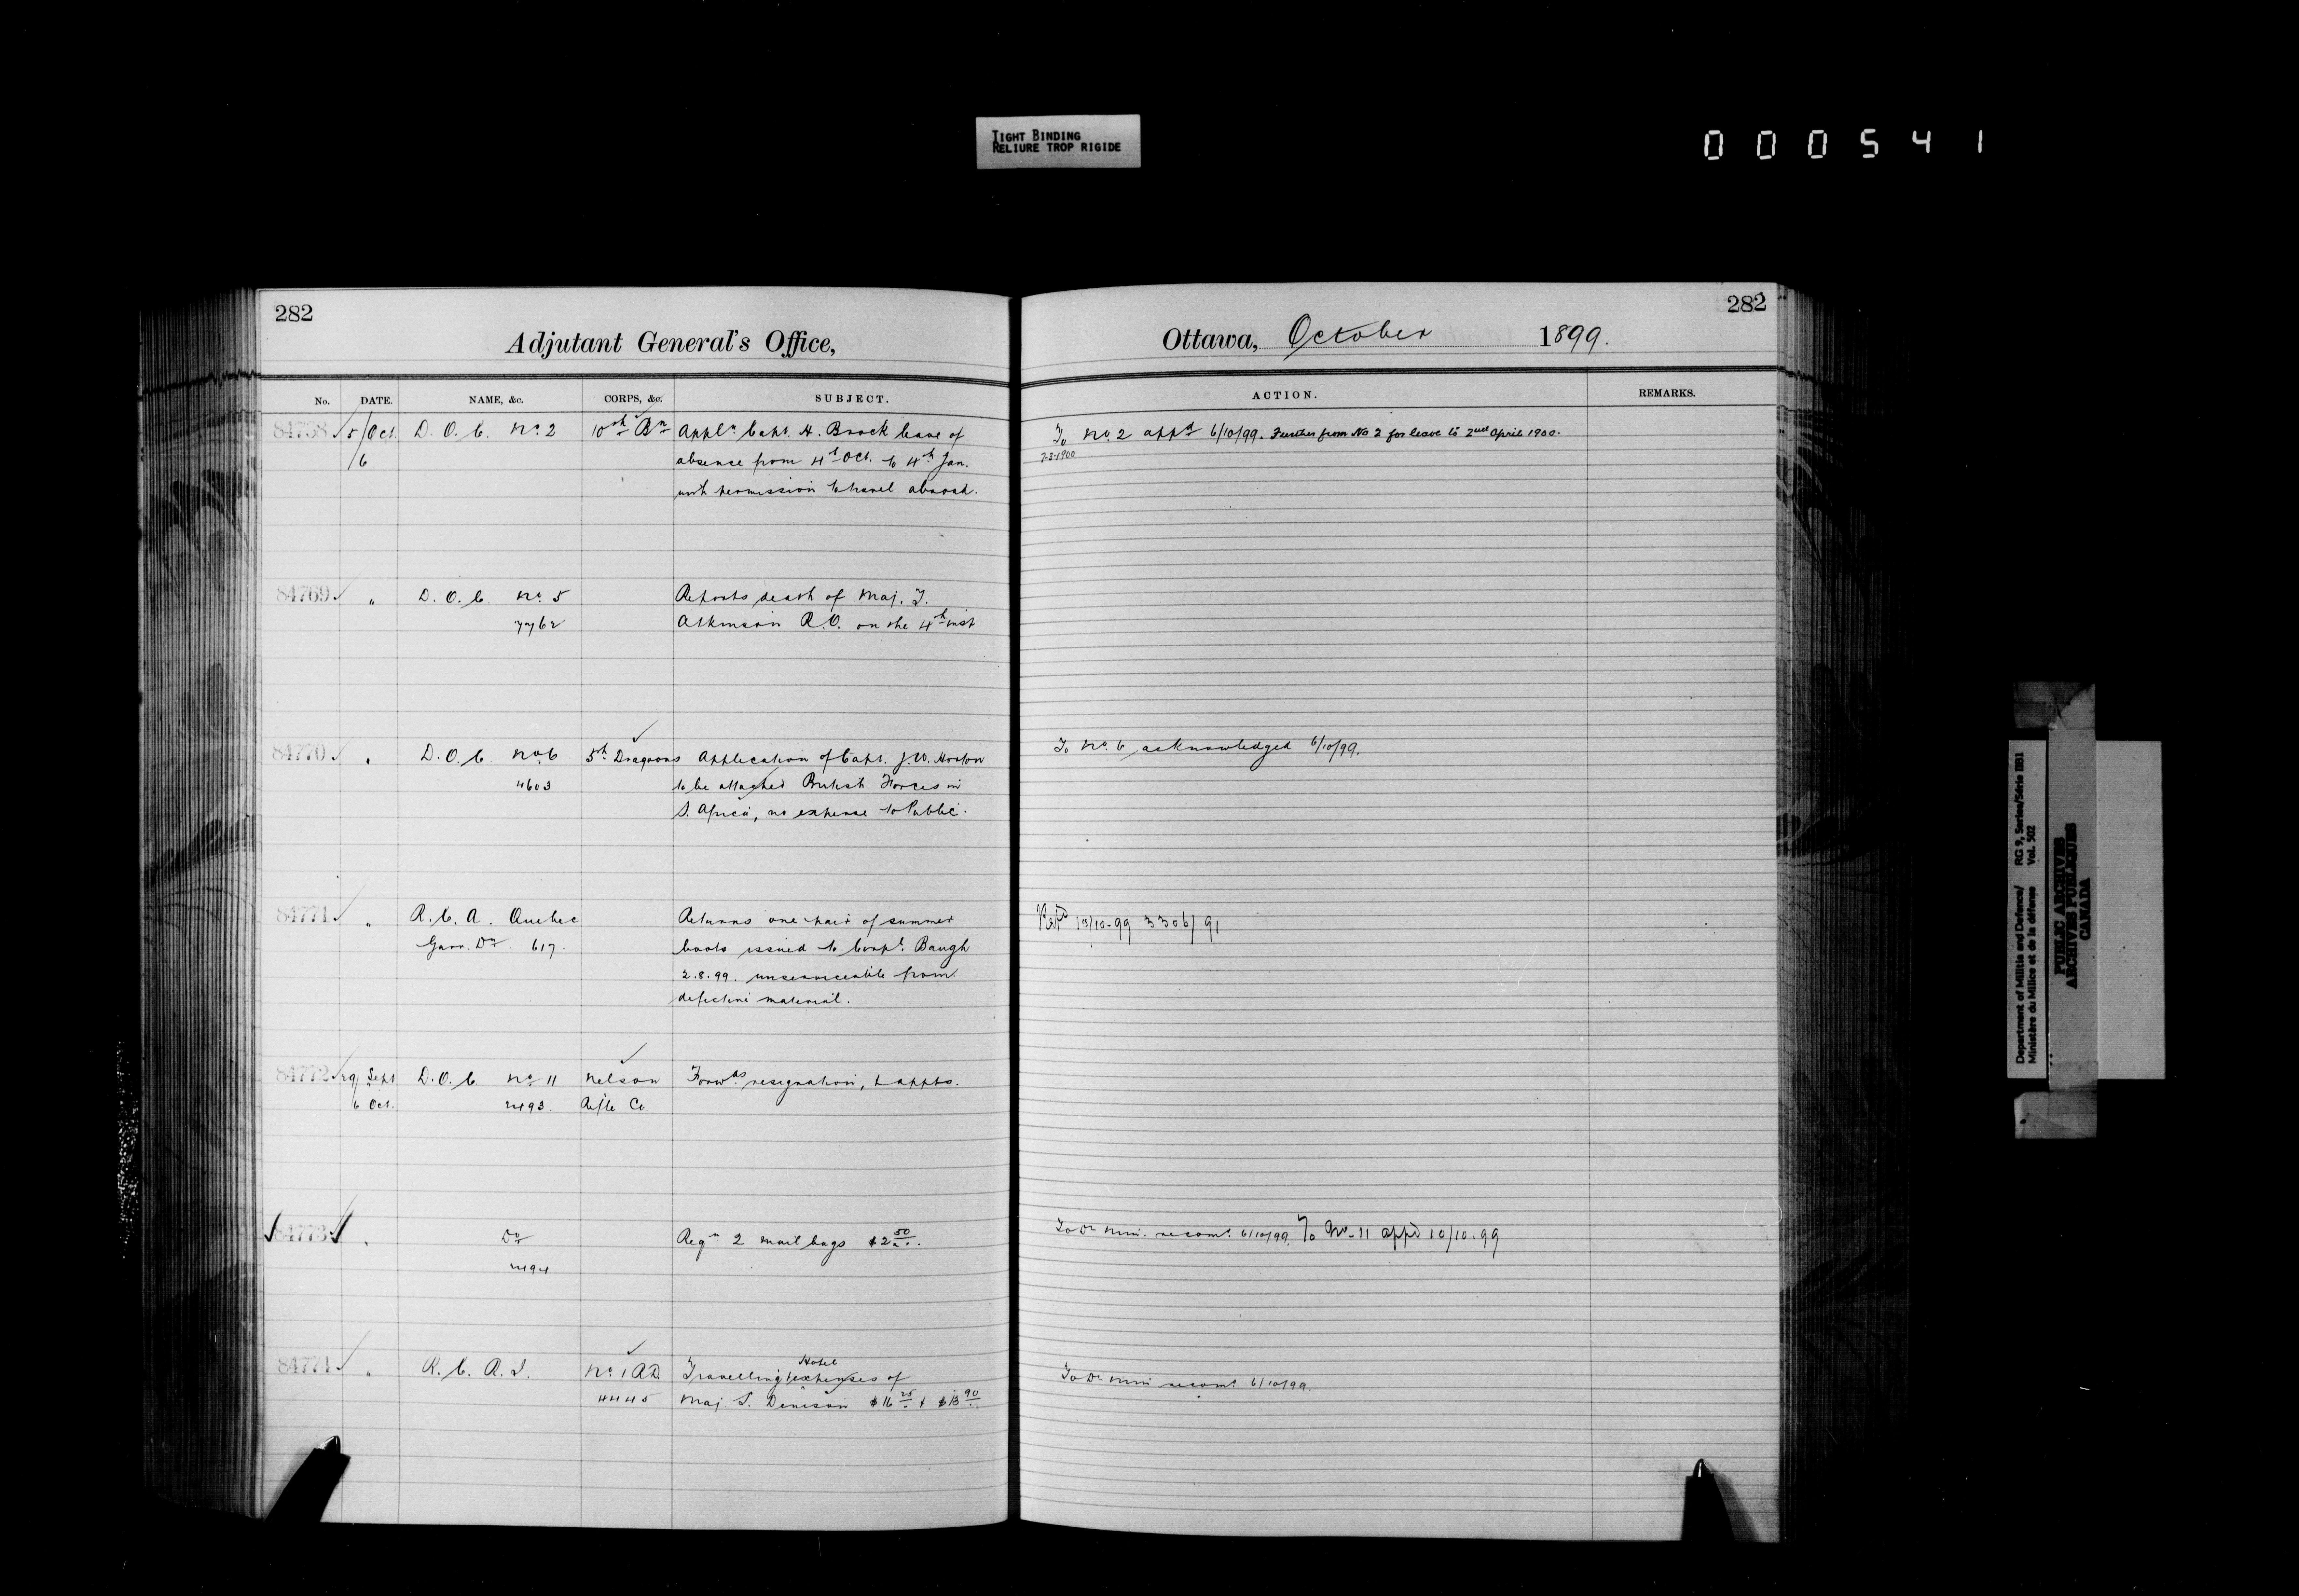 TIGHT BINDING
RELIURE TROP RIGIDE
000541
282
Adjutant General's Office,
No. DATE. NAME, &c. CORPS, &c. SUBJECT.
84768 5/Oct. D. O. C. No. 2 10th Bn Appln Capt. H. Brock leave of
/6 absence from 4th Oct. to 4th Jan.
with permission to travel abroad.
84769 " D. O. C. No. 5 Reports death of Maj. T.
7762 Atkinson R.O. on the 4th inst
84770 " D. O. C. No. 6 5th Dragoons Application of Capt. J.W. Horton
4603 to be attached British Forces in
S. Africa, no expense to Public.
84771 " R. C. A. Quebec Returns one pair of summer
Garr. Dn. 617. boots issued to Corpl. Baugh
2.8.99. unserviceable from
defective material.
84772 29/Sept D. O. C. No. 11 Nelson Forwds resignation, & appts.
6 Oct. 2493. Rifle Co.
84773 " Do Reqn 2 mail bags $2.50.
2494
84774 " R. C. A. I. No. 1 RD. Travelling & Hotel expenses of
4445 Maj. S. Denison $16 25 & $13 90
282
Ottawa, October 1899.
ACTION. REMARKS.
To No. 2 appd 6/10/99. Further from No 2 for leave to 2nd April 1900.
7-3-1900
To No. 6 acknowledged 6/10/99.
13/10-99 3306/91
To Dr Min. recomd. 6/10/99. To No-11 appd 10/10.99
To Dr Min recomd. 6/10/99.
Department of Militia and Defence/ RG 9, Series/Série IIB1
Ministère du Milice et de la défense Vol. 502
PUBLIC ARCHIVES
ARCHIVES PUBLIQUES
CANADA